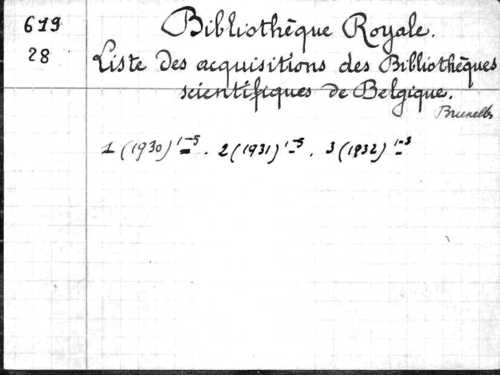 619
28
Bibliothèque Royale.
Liste des acquisitions des Bibliothèques
scientifiques de Belgique.
Bruxelles
1 (1930) 1-5. 2 (1931) 1-5. 3 (1932) 1-3